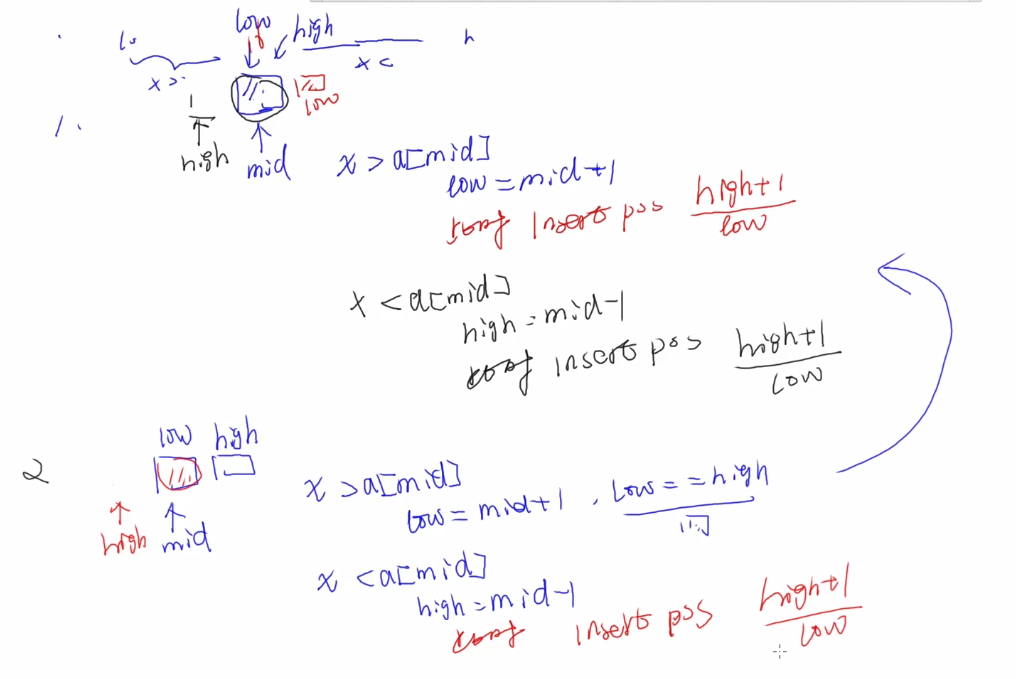 low
high
lo
h
x >
x <
low
1.
high
mid
x > a[mid]
low = mid+1
insert pos high+1
low
x < a[mid]
high = mid-1
insert pos high+1
low
2
low high
high mid
x > a[mid]
low = mid+1, low == high
x < a[mid]
high = mid-1
insert pos high+1
low